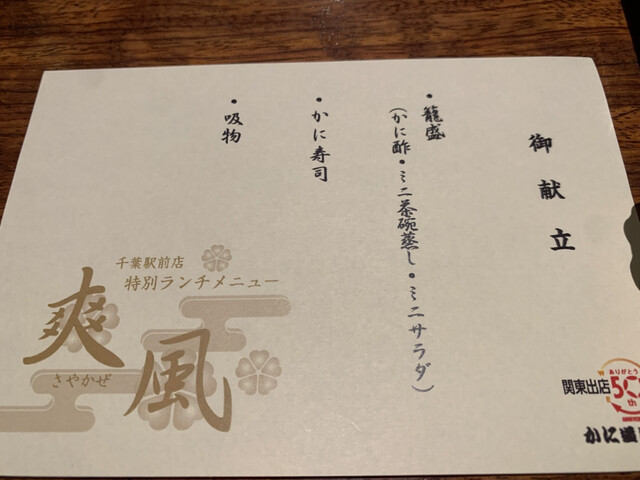 御献立
・籠盛
(かに酢・ミニ茶碗蒸し・ミニサラダ)
・かに寿司
・吸物
千葉駅前店
特別ランチメニュー
爽風
さやかぜ
関東出店
ありがとう
50th
かに道